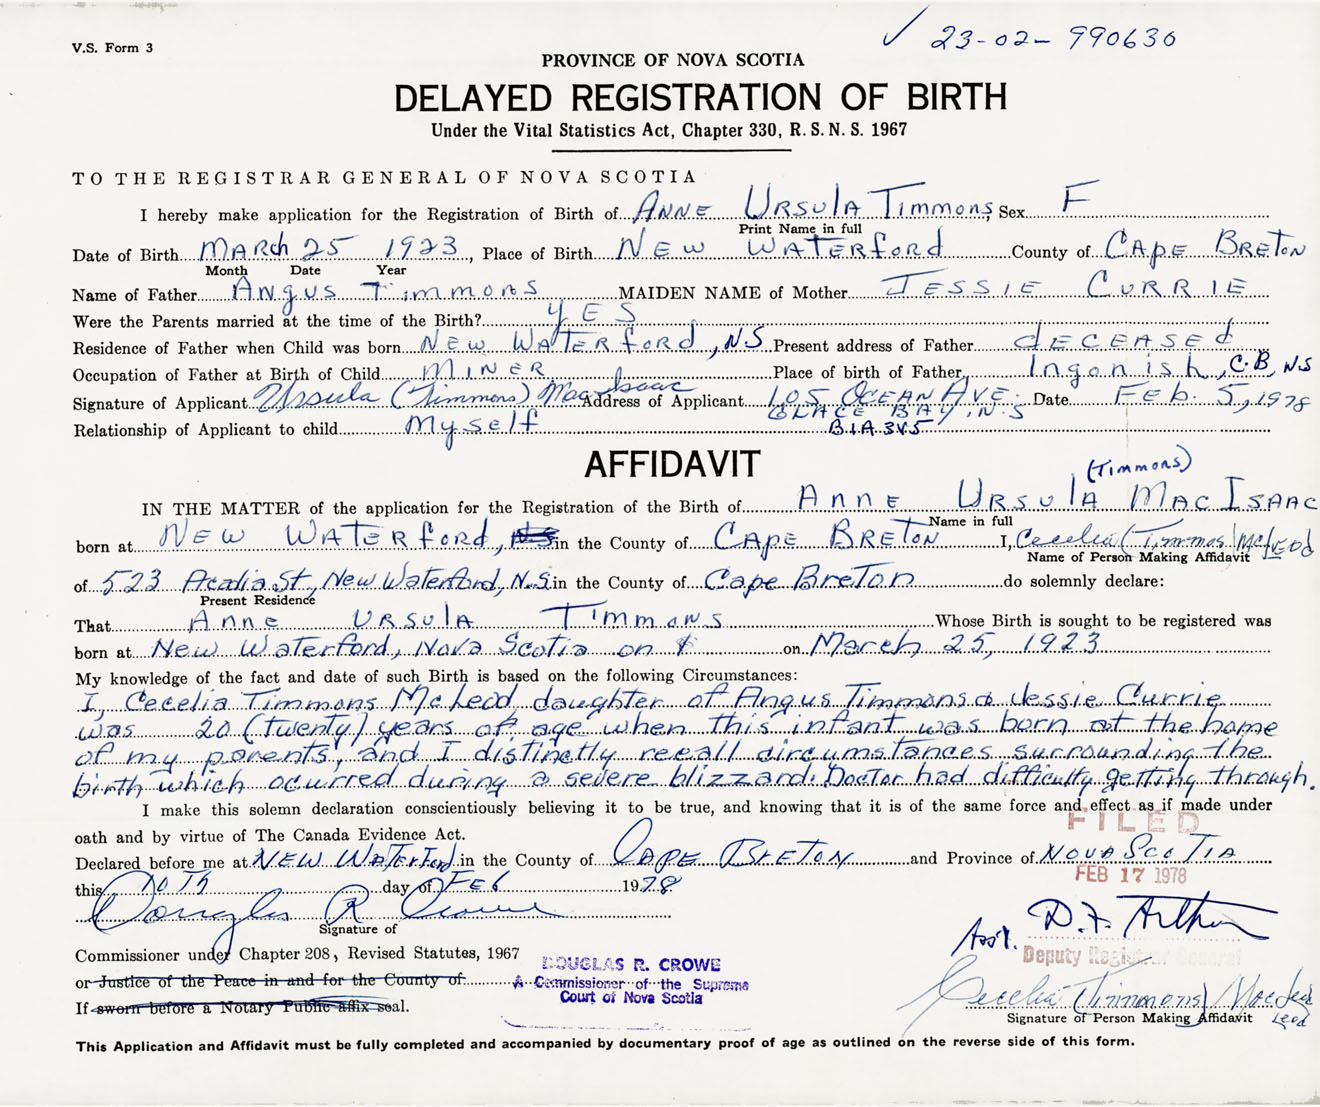 V.S. Form 3
✓ 23-02-990630
PROVINCE OF NOVA SCOTIA
DELAYED REGISTRATION OF BIRTH
Under the Vital Statistics Act, Chapter 330, R.S.N.S. 1967
TO THE REGISTRAR GENERAL OF NOVA SCOTIA
I hereby make application for the Registration of Birth of ANNE URSULA TIMMONS, Sex F
Print Name in full
Date of Birth MARch 25 1923, Place of Birth NEW WATERford County of CAPE BRETON
Month Date Year
Name of Father Angus Timmons MAIDEN NAME of Mother JESSIE CURRIE
Were the Parents married at the time of the Birth? YES
Residence of Father when Child was born NEW WATERford, NS Present address of Father dECEASEd
Occupation of Father at Birth of Child MINER Place of birth of Father Ingonish, C.B, NS
Signature of Applicant Ursula (Timmons) MacIsaac Address of Applicant 105 OCEAN AVE. Date FEb. 5, 1978
GLACE BAY, N.S
Relationship of Applicant to child Myself B1A 3V5
AFFIDAVIT
(Timmons)
IN THE MATTER of the application for the Registration of the Birth of Anne Ursula MacIsaac
Name in full
born at NEW WATERford, NS in the County of CAPE BRETON I, Cecelia (Timmons) McLeod
Name of Person Making Affidavit
of 523 Acadia St, New Waterford, N.S in the County of Cape Breton do solemnly declare:
Present Residence
That Anne URSULA Timmons Whose Birth is sought to be registered was
born at New Waterford, Nova Scotia on on March 25, 1923
My knowledge of the fact and date of such Birth is based on the following Circumstances:
I, Cecelia Timmons McLeod, daughter of Angus Timmons & Jessie Currie
was 20 (twenty) years of age when this infant was born at the home
of my parents, and I distinctly recall circumstances surrounding the
birth which ocurred during a severe blizzard. Doctor had difficulty getting through.
I make this solemn declaration conscientiously believing it to be true, and knowing that it is of the same force and effect as if made under
oath and by virtue of The Canada Evidence Act.
FILED
Declared before me at NEW WATERford in the County of CAPE BRETON and Province of NOVA SCOTIA
FEB 17 1978
this 10Th day of FEb 1978
Douglas R Crowe
Signature of
Asst. D.F. Arthur
Deputy Registrar General
Commissioner under Chapter 208, Revised Statutes, 1967
or Justice of the Peace in and for the County of
If sworn before a Notary Public affix seal.
DOUGLAS R. CROWE
A Commissioner of the Supreme
Court of Nova Scotia
Cecelia (Timmons) MacLeod
Leod
Signature of Person Making Affidavit
This Application and Affidavit must be fully completed and accompanied by documentary proof of age as outlined on the reverse side of this form.